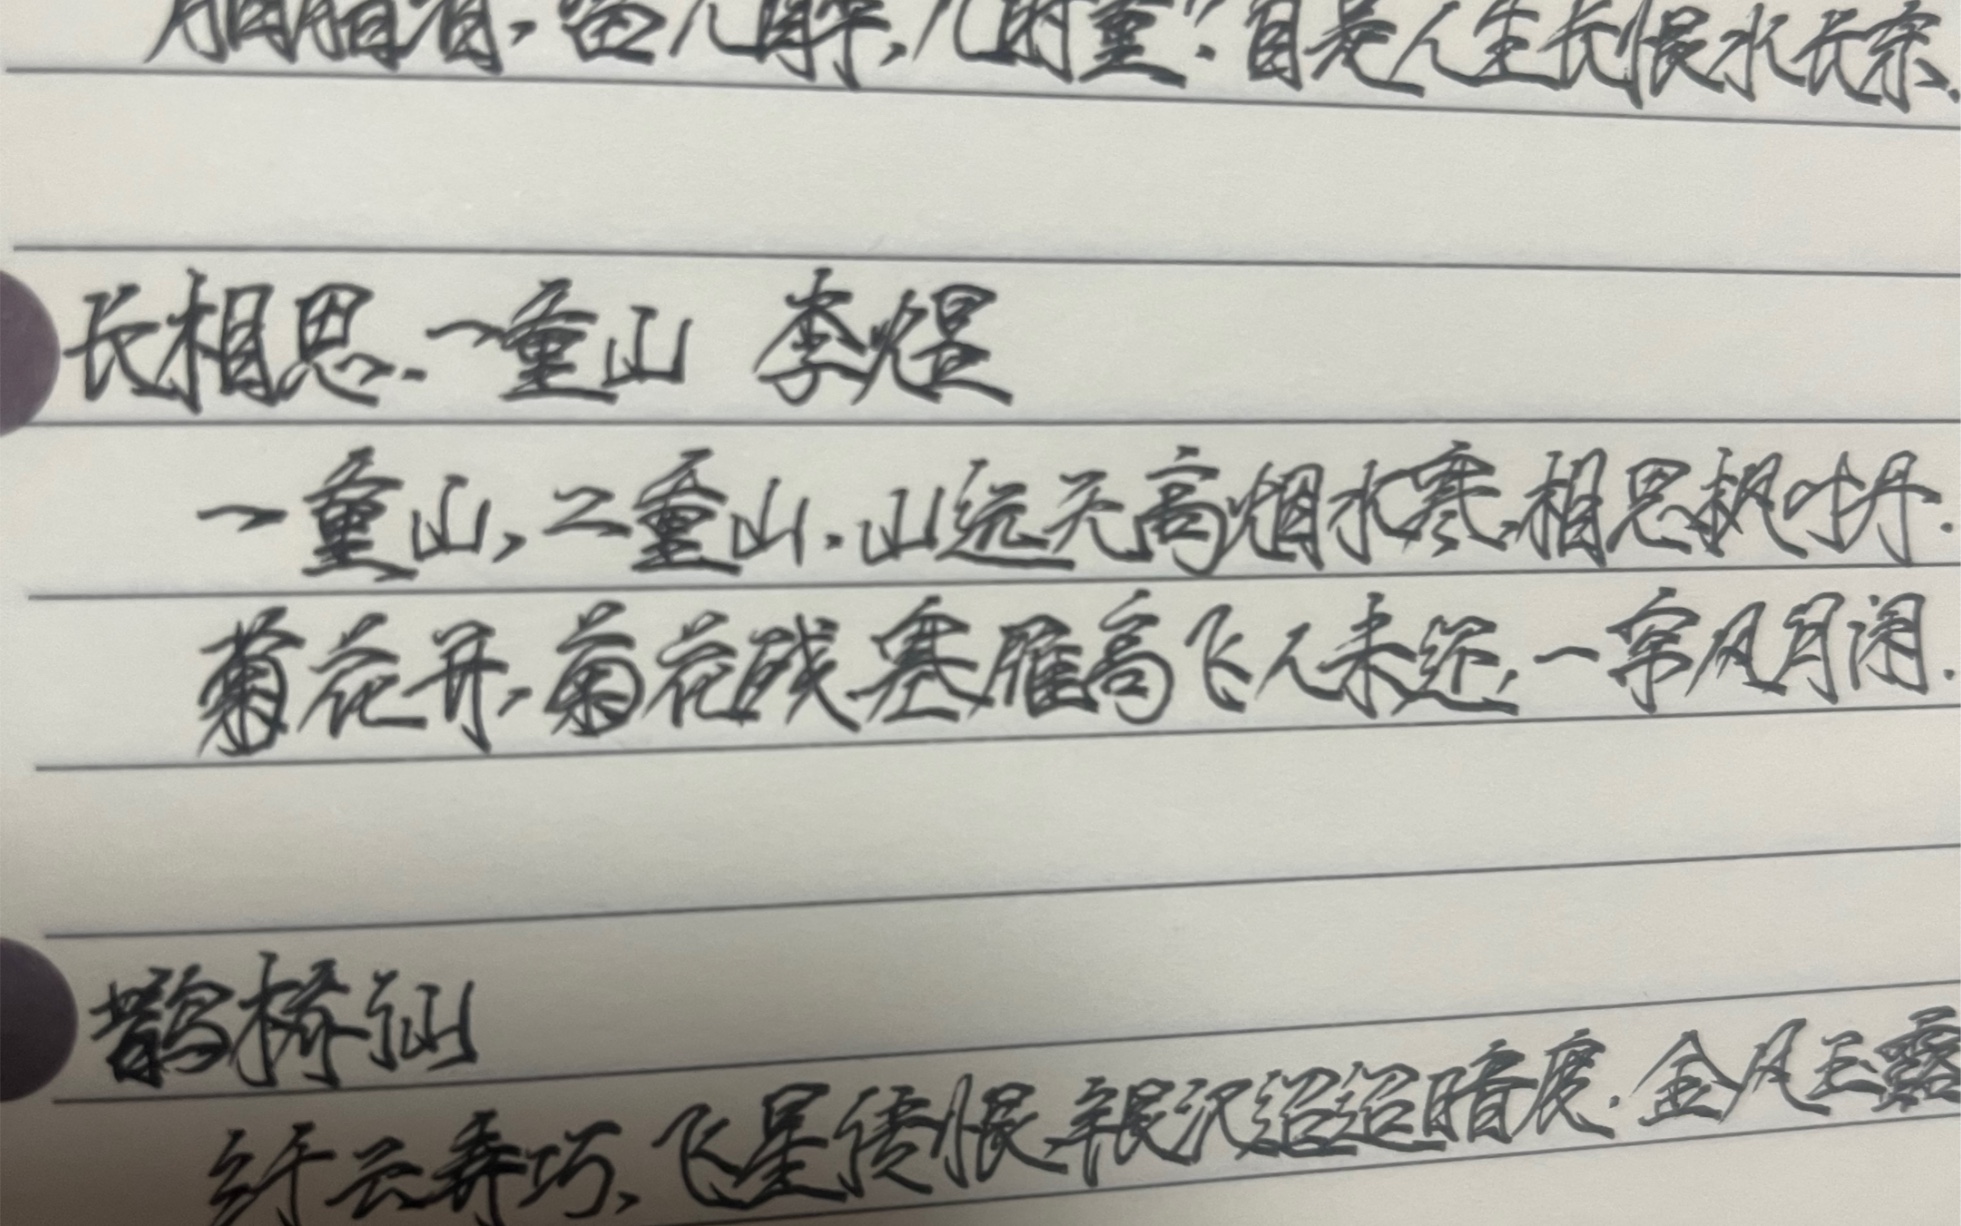 胭脂泪,留人醉,几时重?自是人生长恨水长东.
长相思.一重山 李煜
一重山,二重山.山远天高烟水寒,相思枫叶丹.
菊花开,菊花残.塞雁高飞人未还,一帘风月闲.
鹊桥仙
纤云弄巧、飞星传恨、银汉迢迢暗度.金风玉露